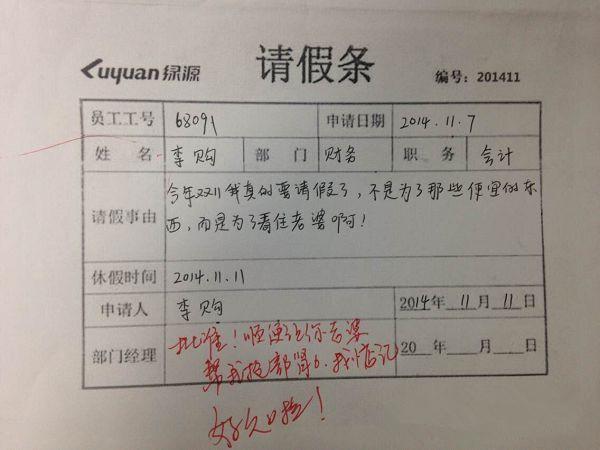 Luyuan 绿源 请假条 编号：201411
员工工号 68091 申请日期 2014.11.7
姓 名 李购 部 门 财务 职 务 会计
今年双11我真的要请假了，不是为了那些便宜的东
请假事由
西，而是为了看住老婆啊！
休假时间 2014.11.11
申请人 李购 2014年 11月 11日
批准！顺便让你老婆
部门经理 20 年 月 日
帮我抢部肾6，我惦记
好久啦！